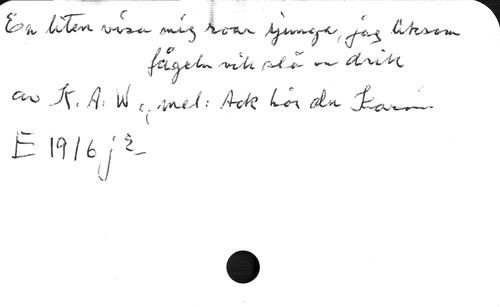 En liten visa mig roar sjunga, jag liksom
fågeln vill slå en drill
av K. A. W., mel: Ack hör du Karin
E 1916 j 2